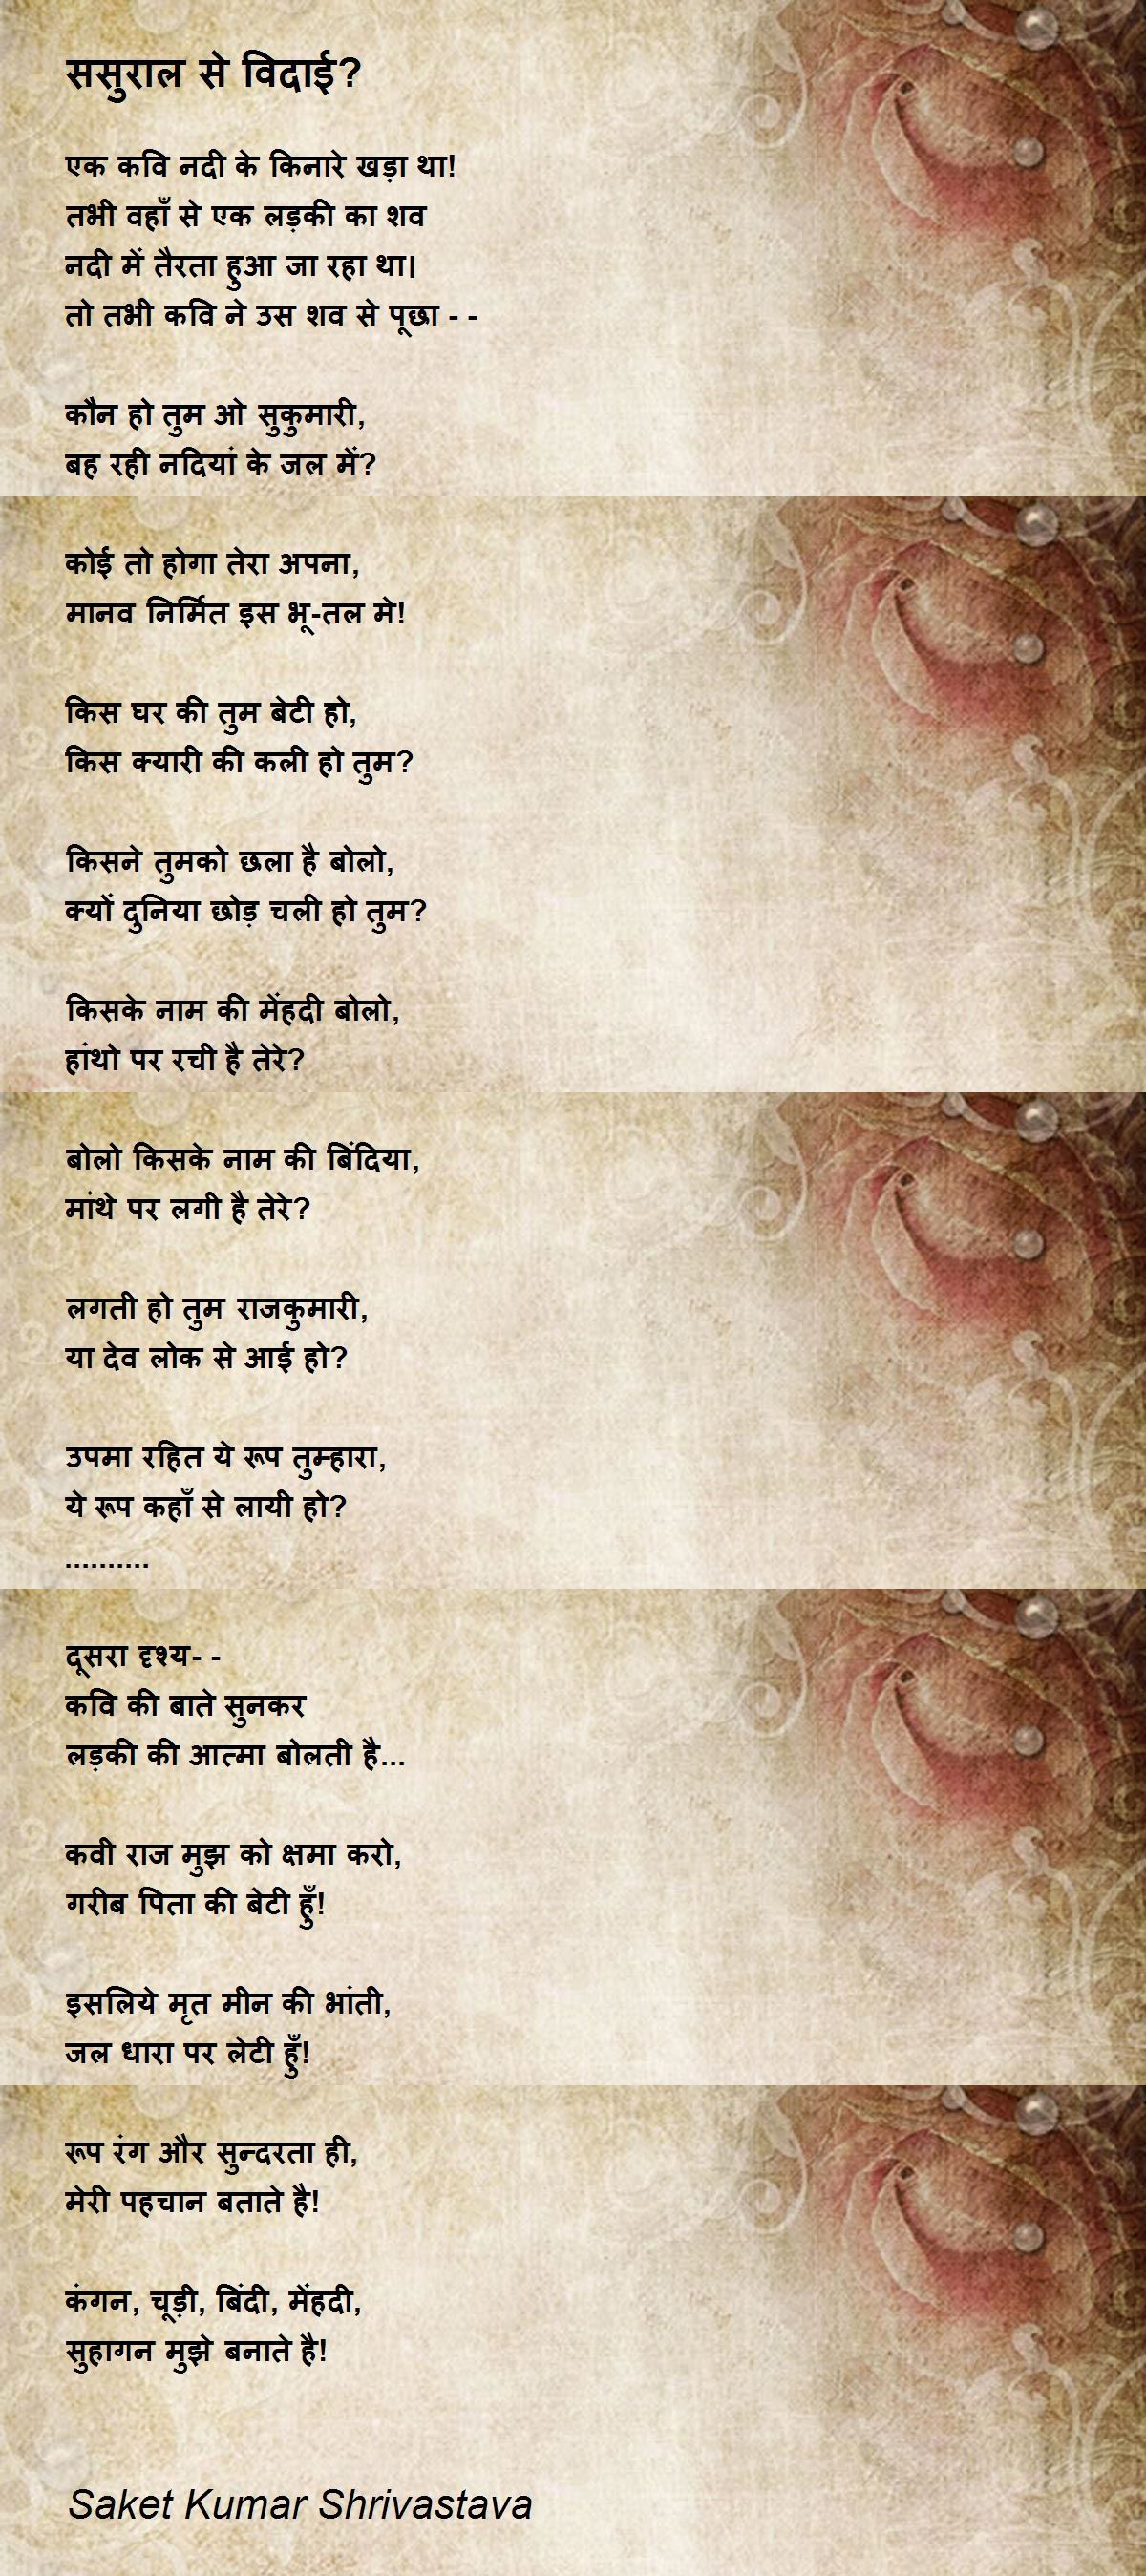 ससुराल से विदाई?
एक कवि नदी के किनारे खड़ा था!
तभी वहाँ से एक लड़की का शव
नदी में तैरता हुआ जा रहा था।
तो तभी कवि ने उस शव से पूछा - -
कौन हो तुम ओ सुकुमारी,
बह रही नदियां के जल में?
कोई तो होगा तेरा अपना,
मानव निर्मित इस भू-तल मे!
किस घर की तुम बेटी हो,
किस क्यारी की कली हो तुम?
किसने तुमको छला है बोलो,
क्यों दुनिया छोड़ चली हो तुम?
किसके नाम की मेंहदी बोलो,
हांथो पर रची है तेरे?
बोलो किसके नाम की बिंदिया,
मांथे पर लगी है तेरे?
लगती हो तुम राजकुमारी,
या देव लोक से आई हो?
उपमा रहित ये रूप तुम्हारा,
ये रूप कहाँ से लायी हो?
..........
दूसरा दृश्य- -
कवि की बाते सुनकर
लड़की की आत्मा बोलती है...
कवी राज मुझ को क्षमा करो,
गरीब पिता की बेटी हुँ!
इसलिये मृत मीन की भांती,
जल धारा पर लेटी हुँ!
रूप रंग और सुन्दरता ही,
मेरी पहचान बताते है!
कंगन, चूड़ी, बिंदी, मेंहदी,
सुहागन मुझे बनाते है!
Saket Kumar Shrivastava